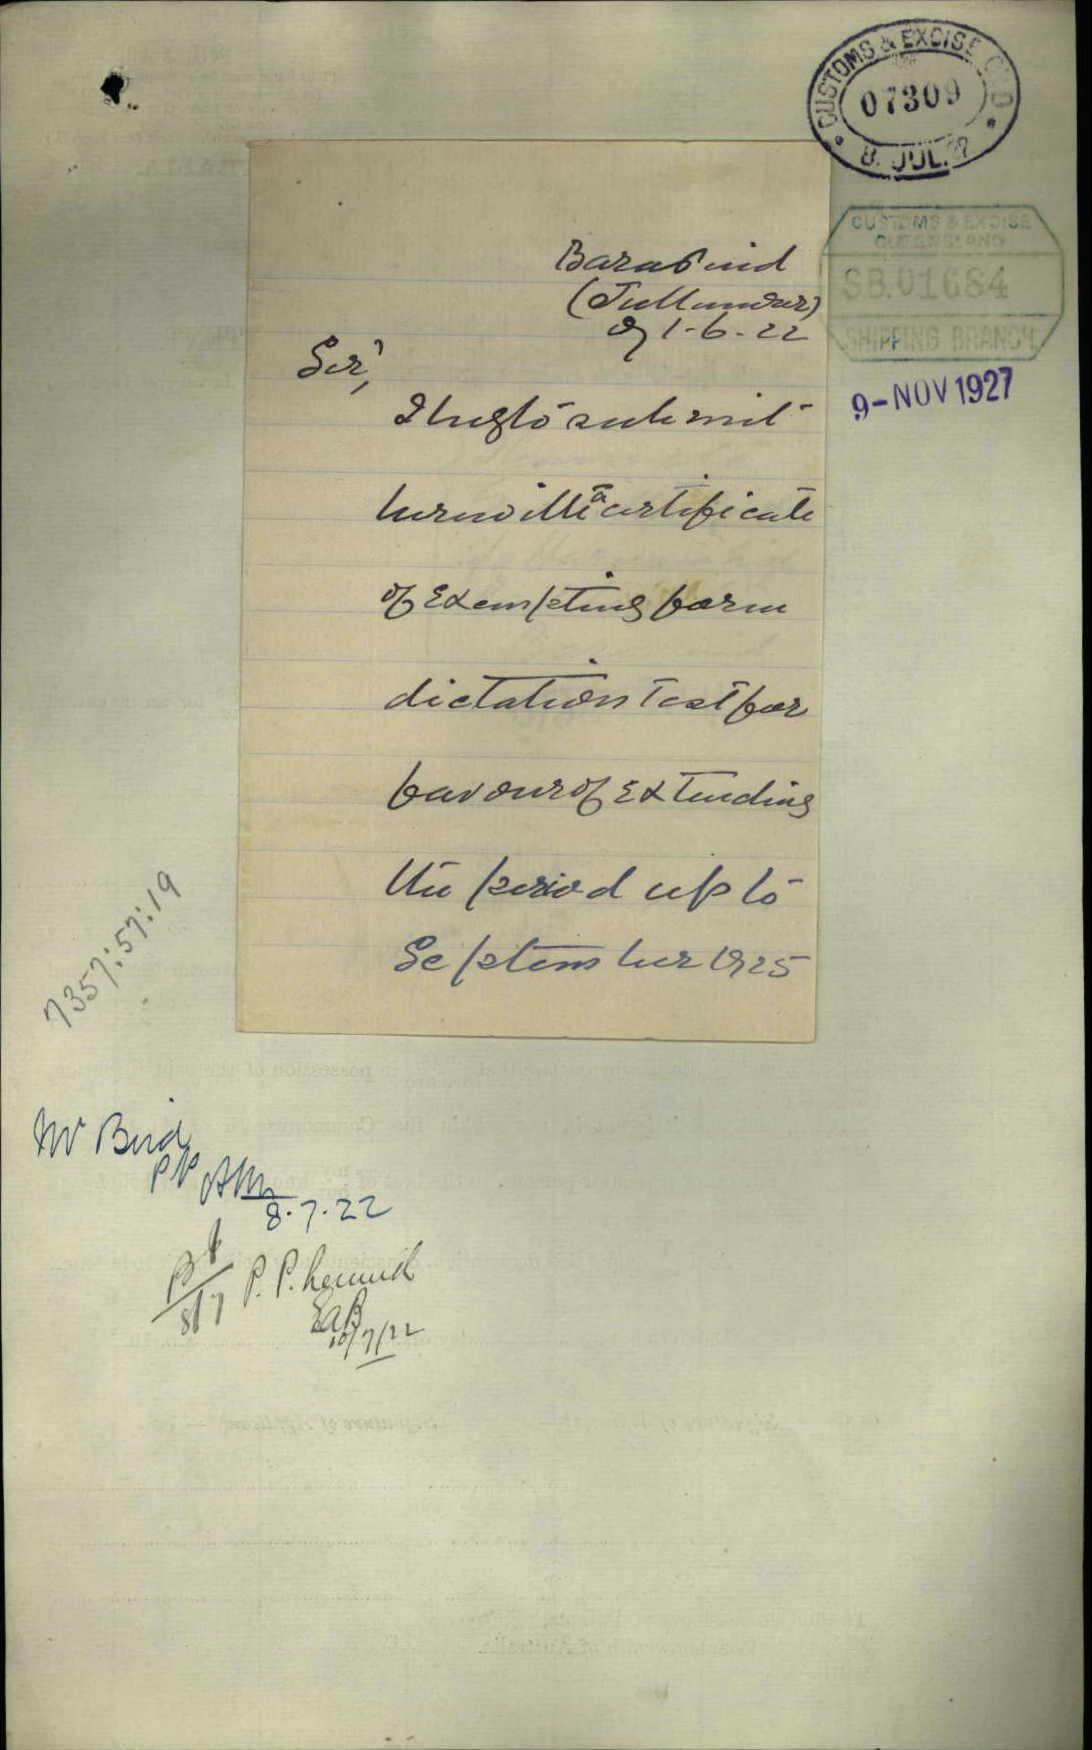 CUSTOMS & EXCISE QLD
07309
8. JUL. 2?
CUSTOMS & EXCISE
QUEENSLAND
S.B. 01684
SHIPPING BRANCH
9-NOV 1927
Barapind
(Jullundur)
1-6-22
Sir,
I beg to submit
herewith a certificate
of Exempting form
dictation Test for
favour of Extending
the period up to
September 1925
7357:57:19
Mr Bird
P.P.
8.7.22
8/7
P.P. herewith
EAB
10/7/22